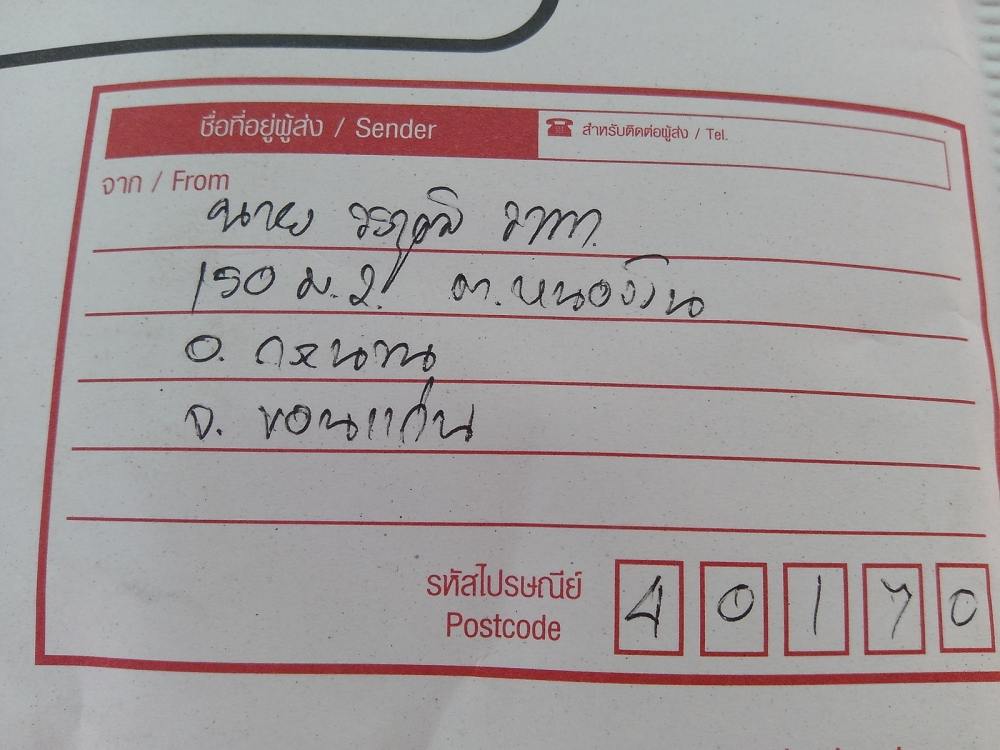 ชื่อที่อยู่ผู้ส่ง / Sender
สำหรับติดต่อผู้ส่ง / Tel.
จาก / From
นาย
150 ม.2 ต.หนองโน
อ. กระนวน
จ. ขอนแก่น
รหัสไปรษณีย์
Postcode
40170